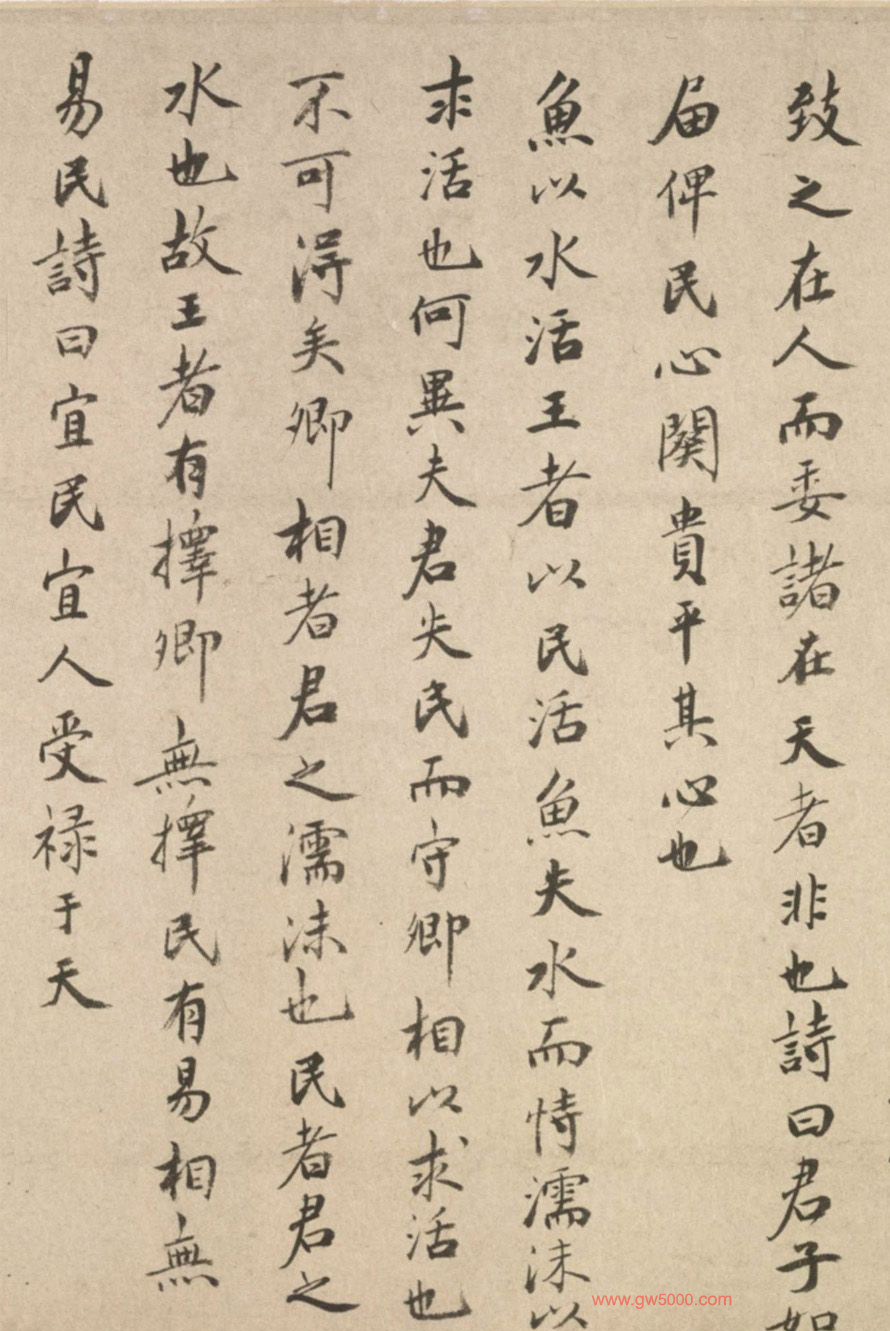 致之在人而委諸在天者非也詩曰君子如
届俾民心闋貴平其心也
魚以水活王者以民活魚失水而恃濡沫以
求活也何異夫君失民而守卿相以求活也
不可得矣卿相者君之濡沫也民者君之
水也故王者有擇卿無擇民有易相無
易民詩曰宜民宜人受禄于天
www.gw5000.com